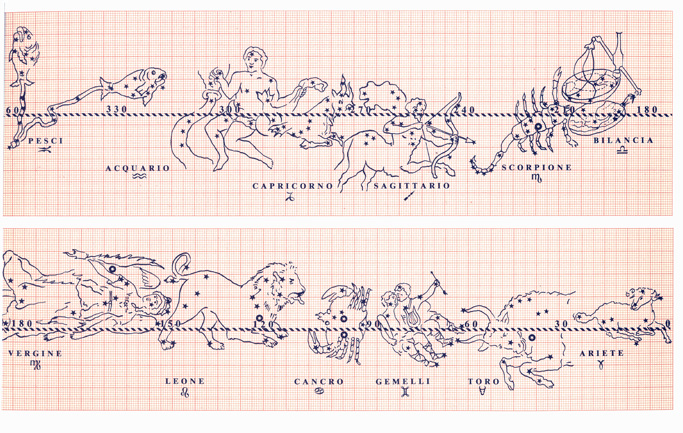 330
180
PESCI
BILANCIA
ACQUARIO
SCORPIONE
CAPRICORNO
SAGITTARIO
180
150
120
90
60
30
0
VERGINE
ARIETE
LEONE
CANCRO
GEMELLI
TORO